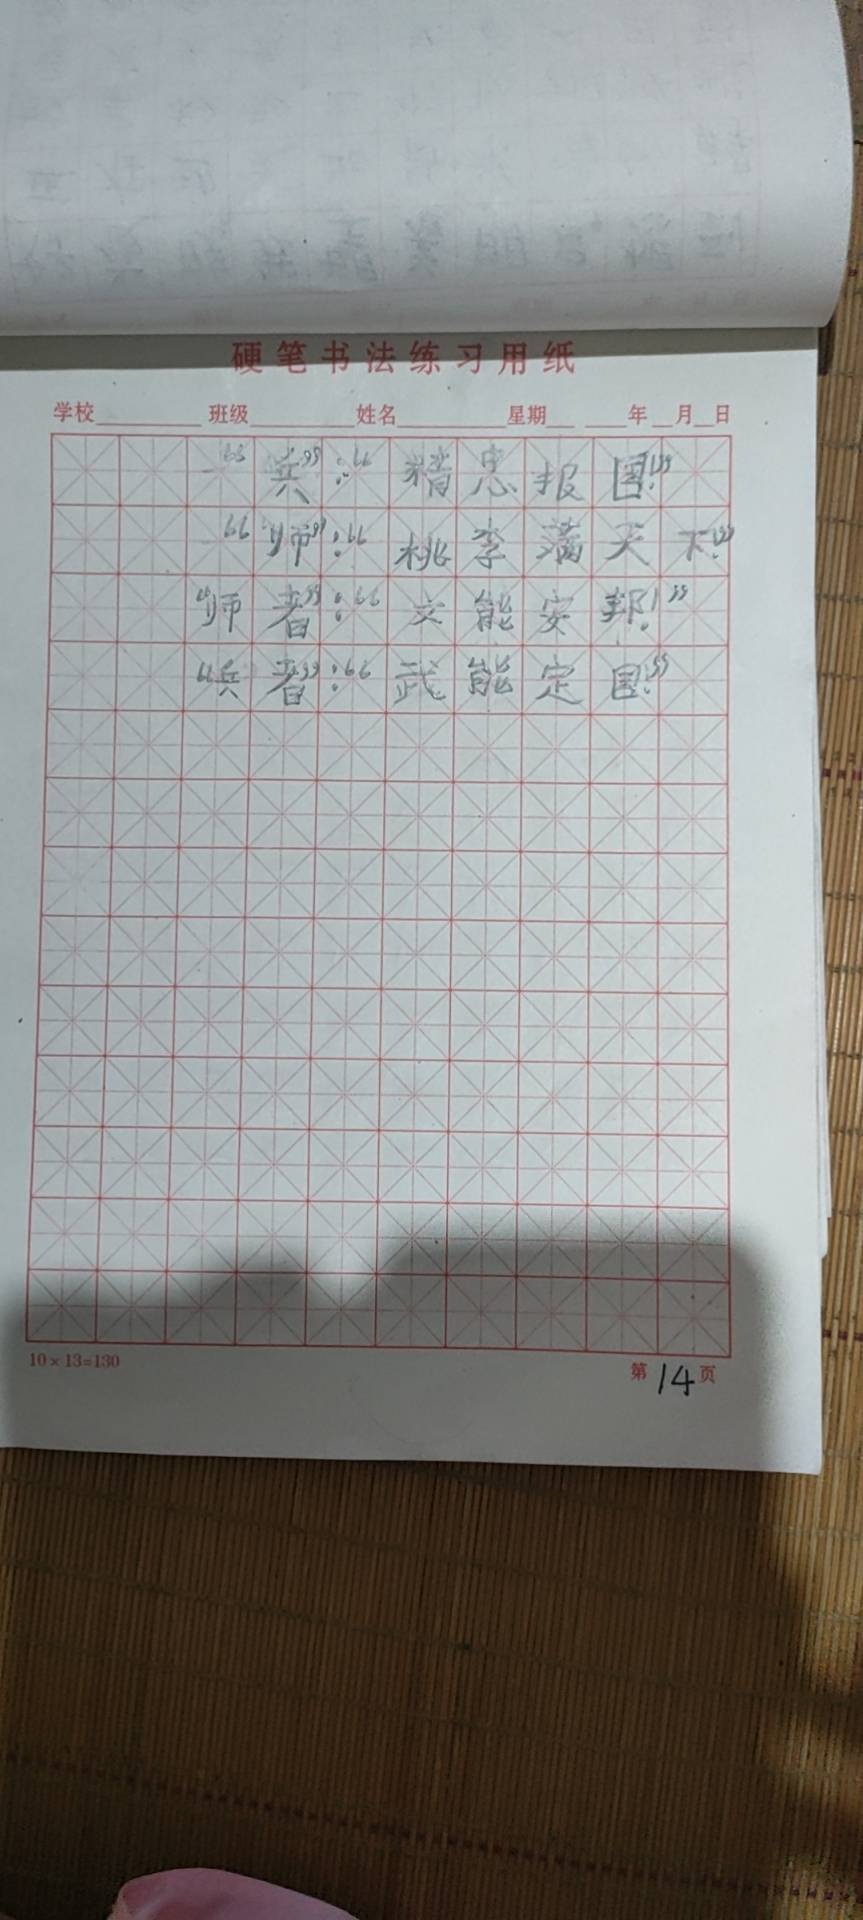 硬笔书法练习用纸
学校 班级 姓名 星期 年 月 日
“兵”：“精忠报国！”
“师”：“桃李满天下！”
“师者”：“文能安邦！”
“兵者”：“武能定国！”
10×13=130
第14页